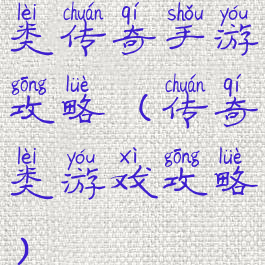 lèi chuán qí shǒu yóu
类传奇手游
gōng lüè chuán qí
攻略(传奇
lèi yóu xì gōng lüè
类游戏攻略
)